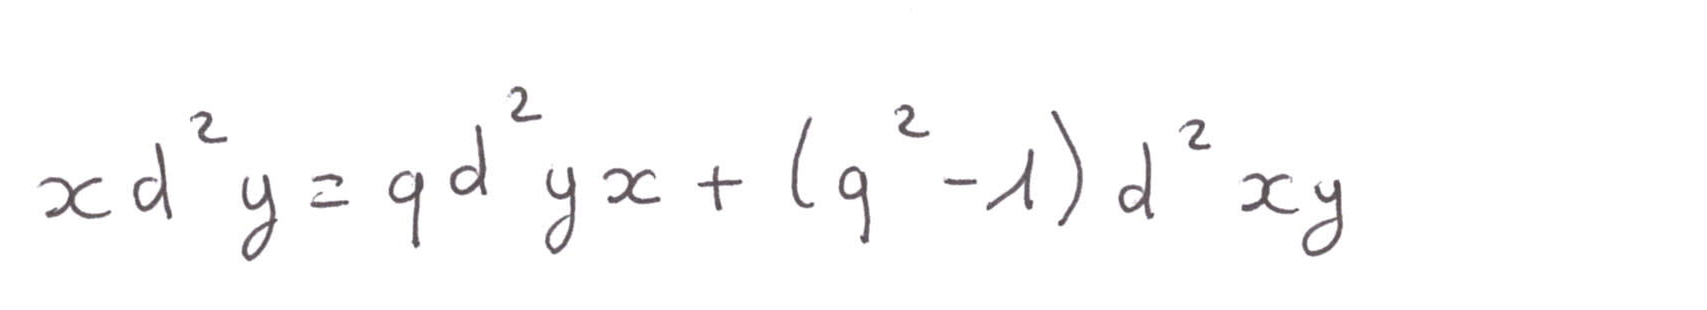 xd²y = qd²yx + (q²-1)d²xy